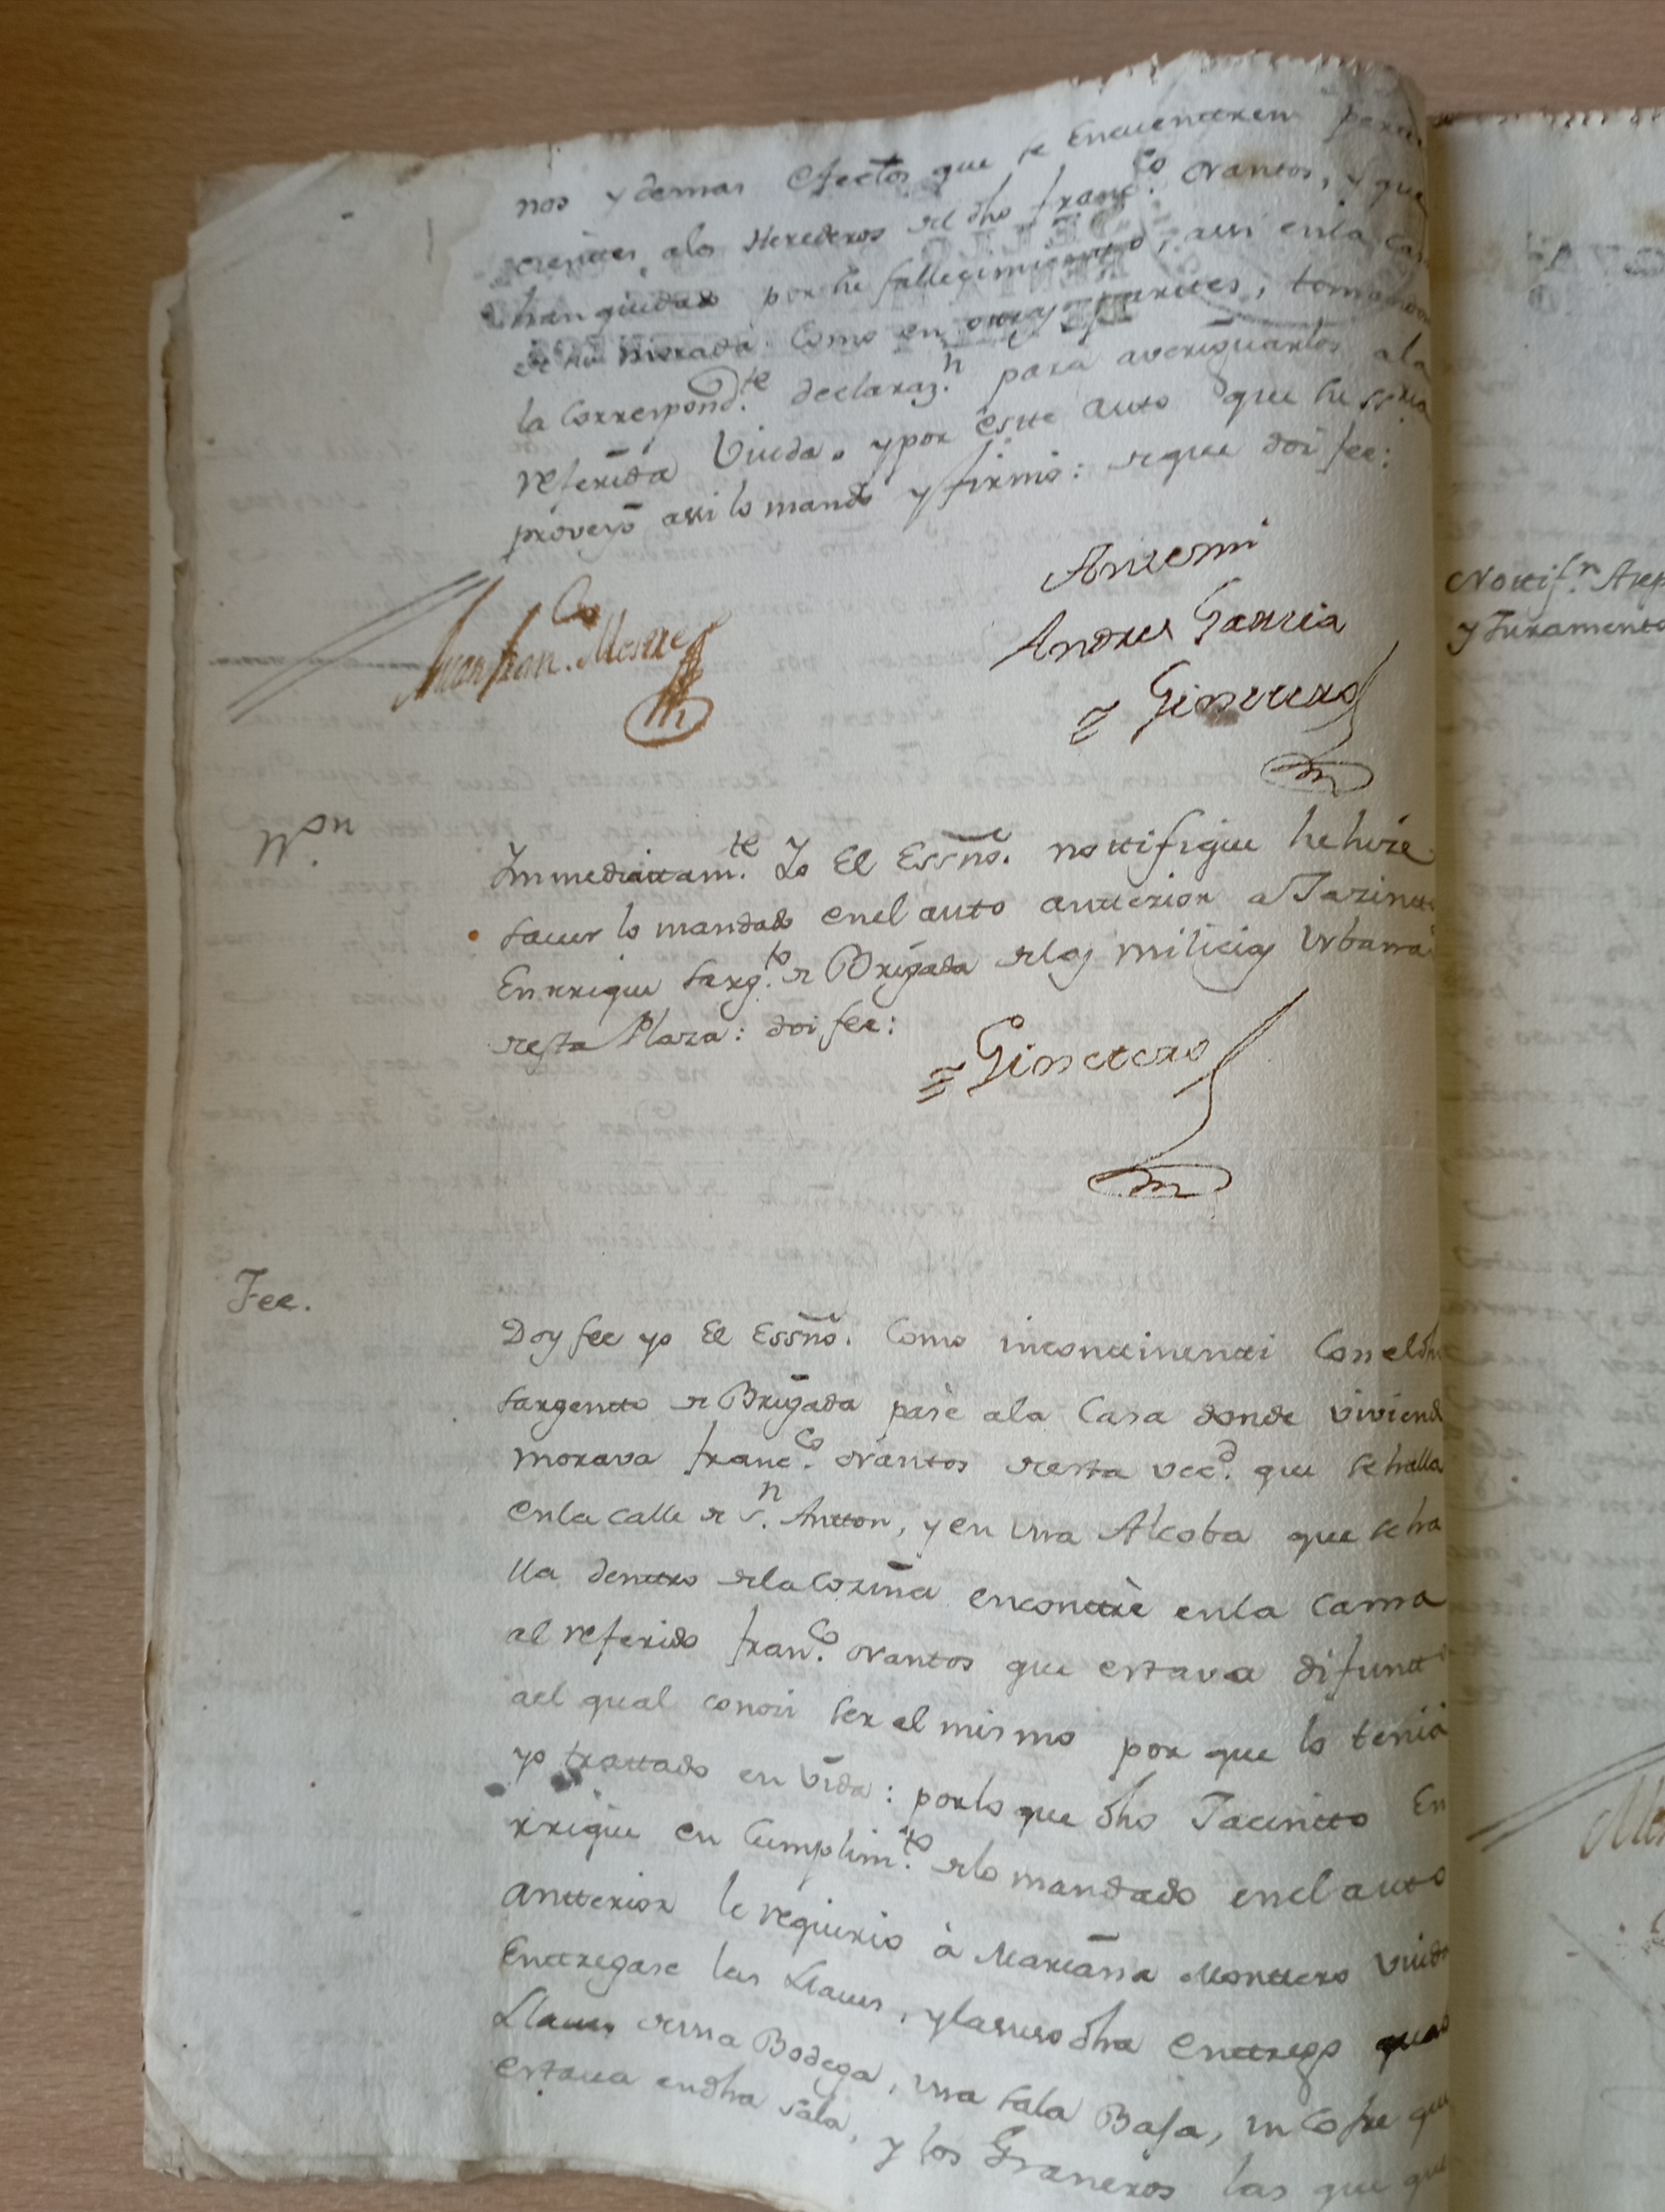 nos y demas efectos que se encuentren perte
necientes a los Herederos del dho franco. orantos, y que
han quedado por su fallecimiento, assi en la cas
de su morada como en otras partes, tomando
la Correspond.te declaraz.n para averiguarlos a la
referida Viuda. y por este auto que su ssria
proveyó assi lo mandó y firmó: de que doi fee:
Juan Fran.co Mestre
Antemi
Andres Garcia
= Ginettero
N.on
Immediattam.te Yo El Essno. nottifique he hize
saver lo mandado en el auto antterior a Jazintto
Enrrique Sarg.to de Brigada de las milicias Urbana
desta Plaza: doi fee:
= Ginettero
Fee.
Doy fee yo El Essno. Como inconttinentti Con el dho
sargentto de Brigada pasè a la Casa donde viviend
morava franc.co orantos desta vec.d que se halla
en la calle de S.n Antton, y en una Alcoba que se ha
lla denttro de la Cozina encontrè en la Cama
al referido fran.co orantos que estava difuntto
a el qual conozi ser el mismo por que lo tenia
yo trattado en vida: por lo que dho Jacintto En
rrique en Cumplim.to de lo mandado en el auto
antterior le requirio à Mariana Monttero Viuda
Enttregase las Llaves, y la suso dha Enttrego
Llaves de una Bodega, una sala Baja, un Cofre que
estava en dha sala, y los Graneros las que que
Nottif.n Acep
y Juramento